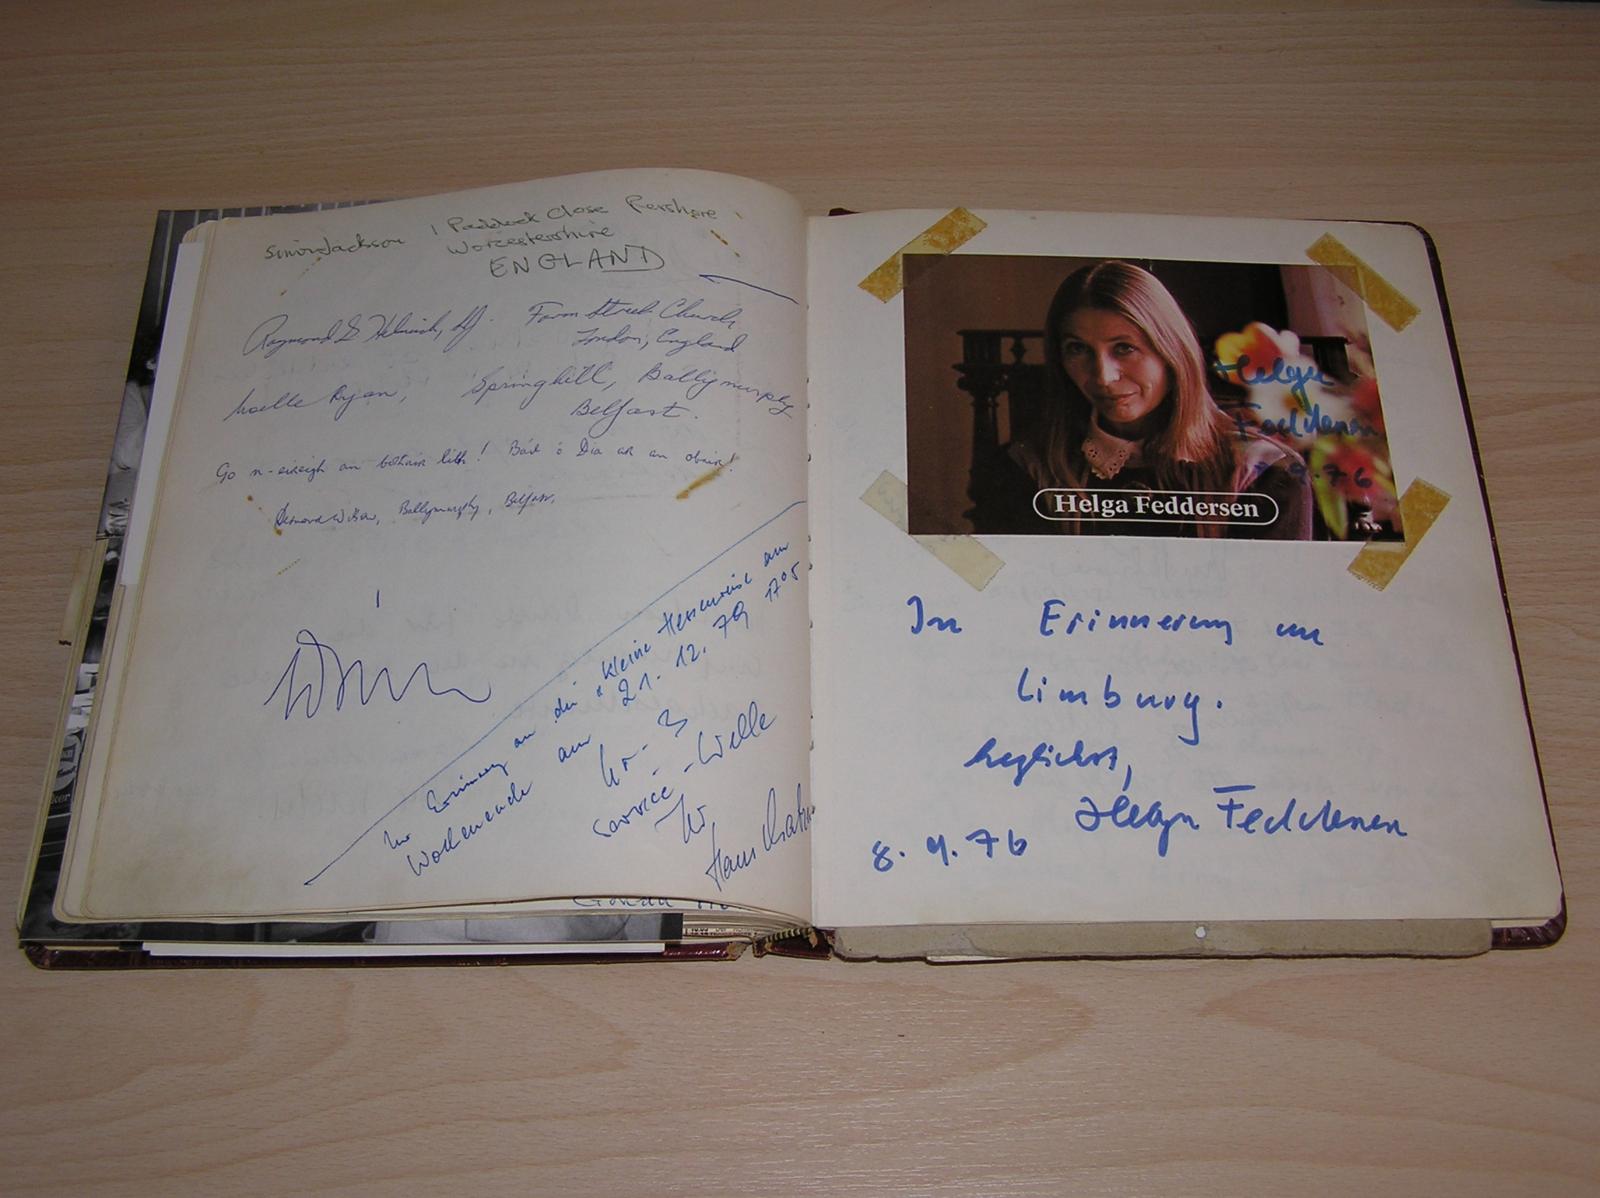 Simon Jackson 1 Paddock Close Pershore
Worcestershire
ENGLAND
Farm Street Church
London, England
Noelle Ryan, Springhill, Ballymurphy
Belfast.
Go n-eireigh an bóthair libh! Bail ó Dia ar an obair!
Desmond Wilson, Ballymurphy, Belfast.
Zur Erinnerung an die "Kleine Hessenreise am
Wochenende am 21.12.79 17⁰⁵
hr-3
Service-Welle
Ihr
Hans
Helga
Feddersen
8.9.76
Helga Feddersen
In Erinnerung an
Limburg.
herzlichst,
Helga Feddersen
8.9.76